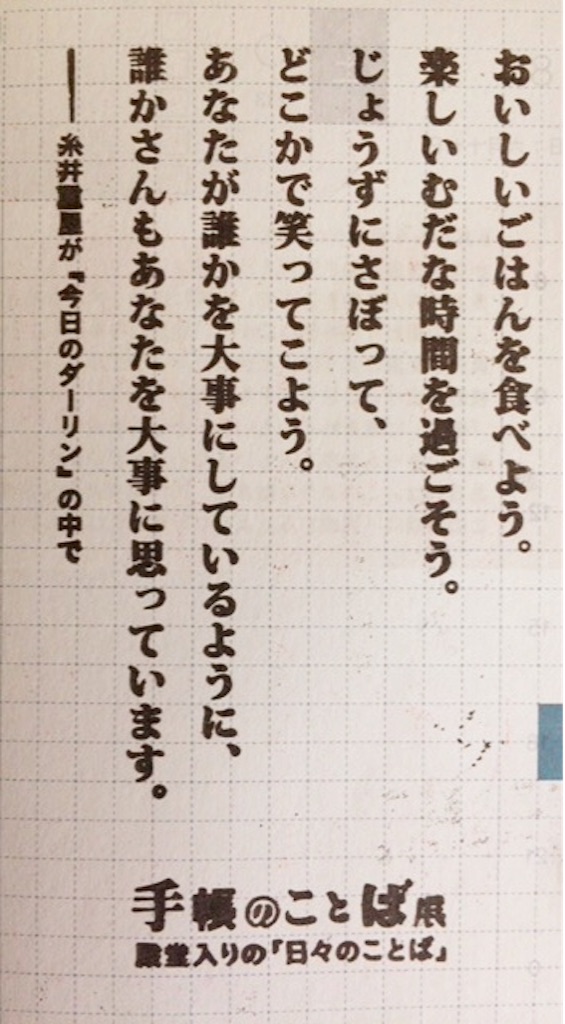 おいしいごはんを食べよう。
楽しいむだな時間を過ごそう。
じょうずにさぼって、
どこかで笑ってこよう。
あなたが誰かを大事にしているように、
誰かさんもあなたを大事に思っています。
── 糸井重里が『今日のダーリン』の中で
手帳のことば展
殿堂入りの『日々のことば』